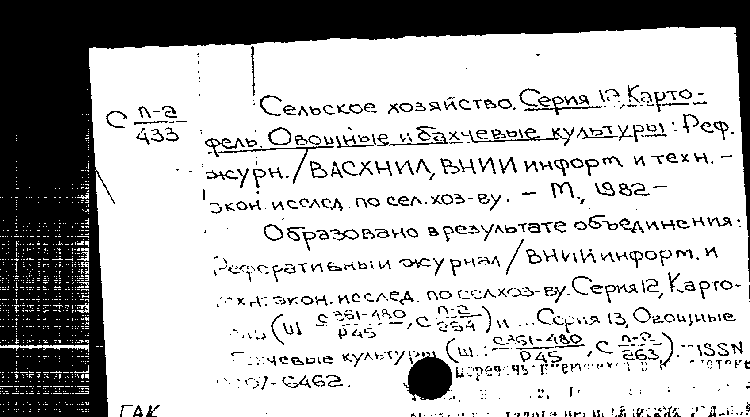 С п-а/433
Сельское хозяйство. Серия 12, Карто-
фель. Овощные и бахчевые культуры: Реф.
журн. / ВАСХНИЛ, ВНИИ информ. и техн.-
экон. исслед. по сел. хоз-ву. – М., 1982–
Образовано в результате объединения:
Реферативный журнал / ВНИИ информ. и
техн. экон. исслед. по сел.хоз-ву. Серия 12, Карто-
(Ш С351-480/Р45, С п-а/264) и ... Серия 13, Овощные
бахчевые культуры (Ш: С351-480/Р45, С п-а/263). – ISSN
6462.
ГАК